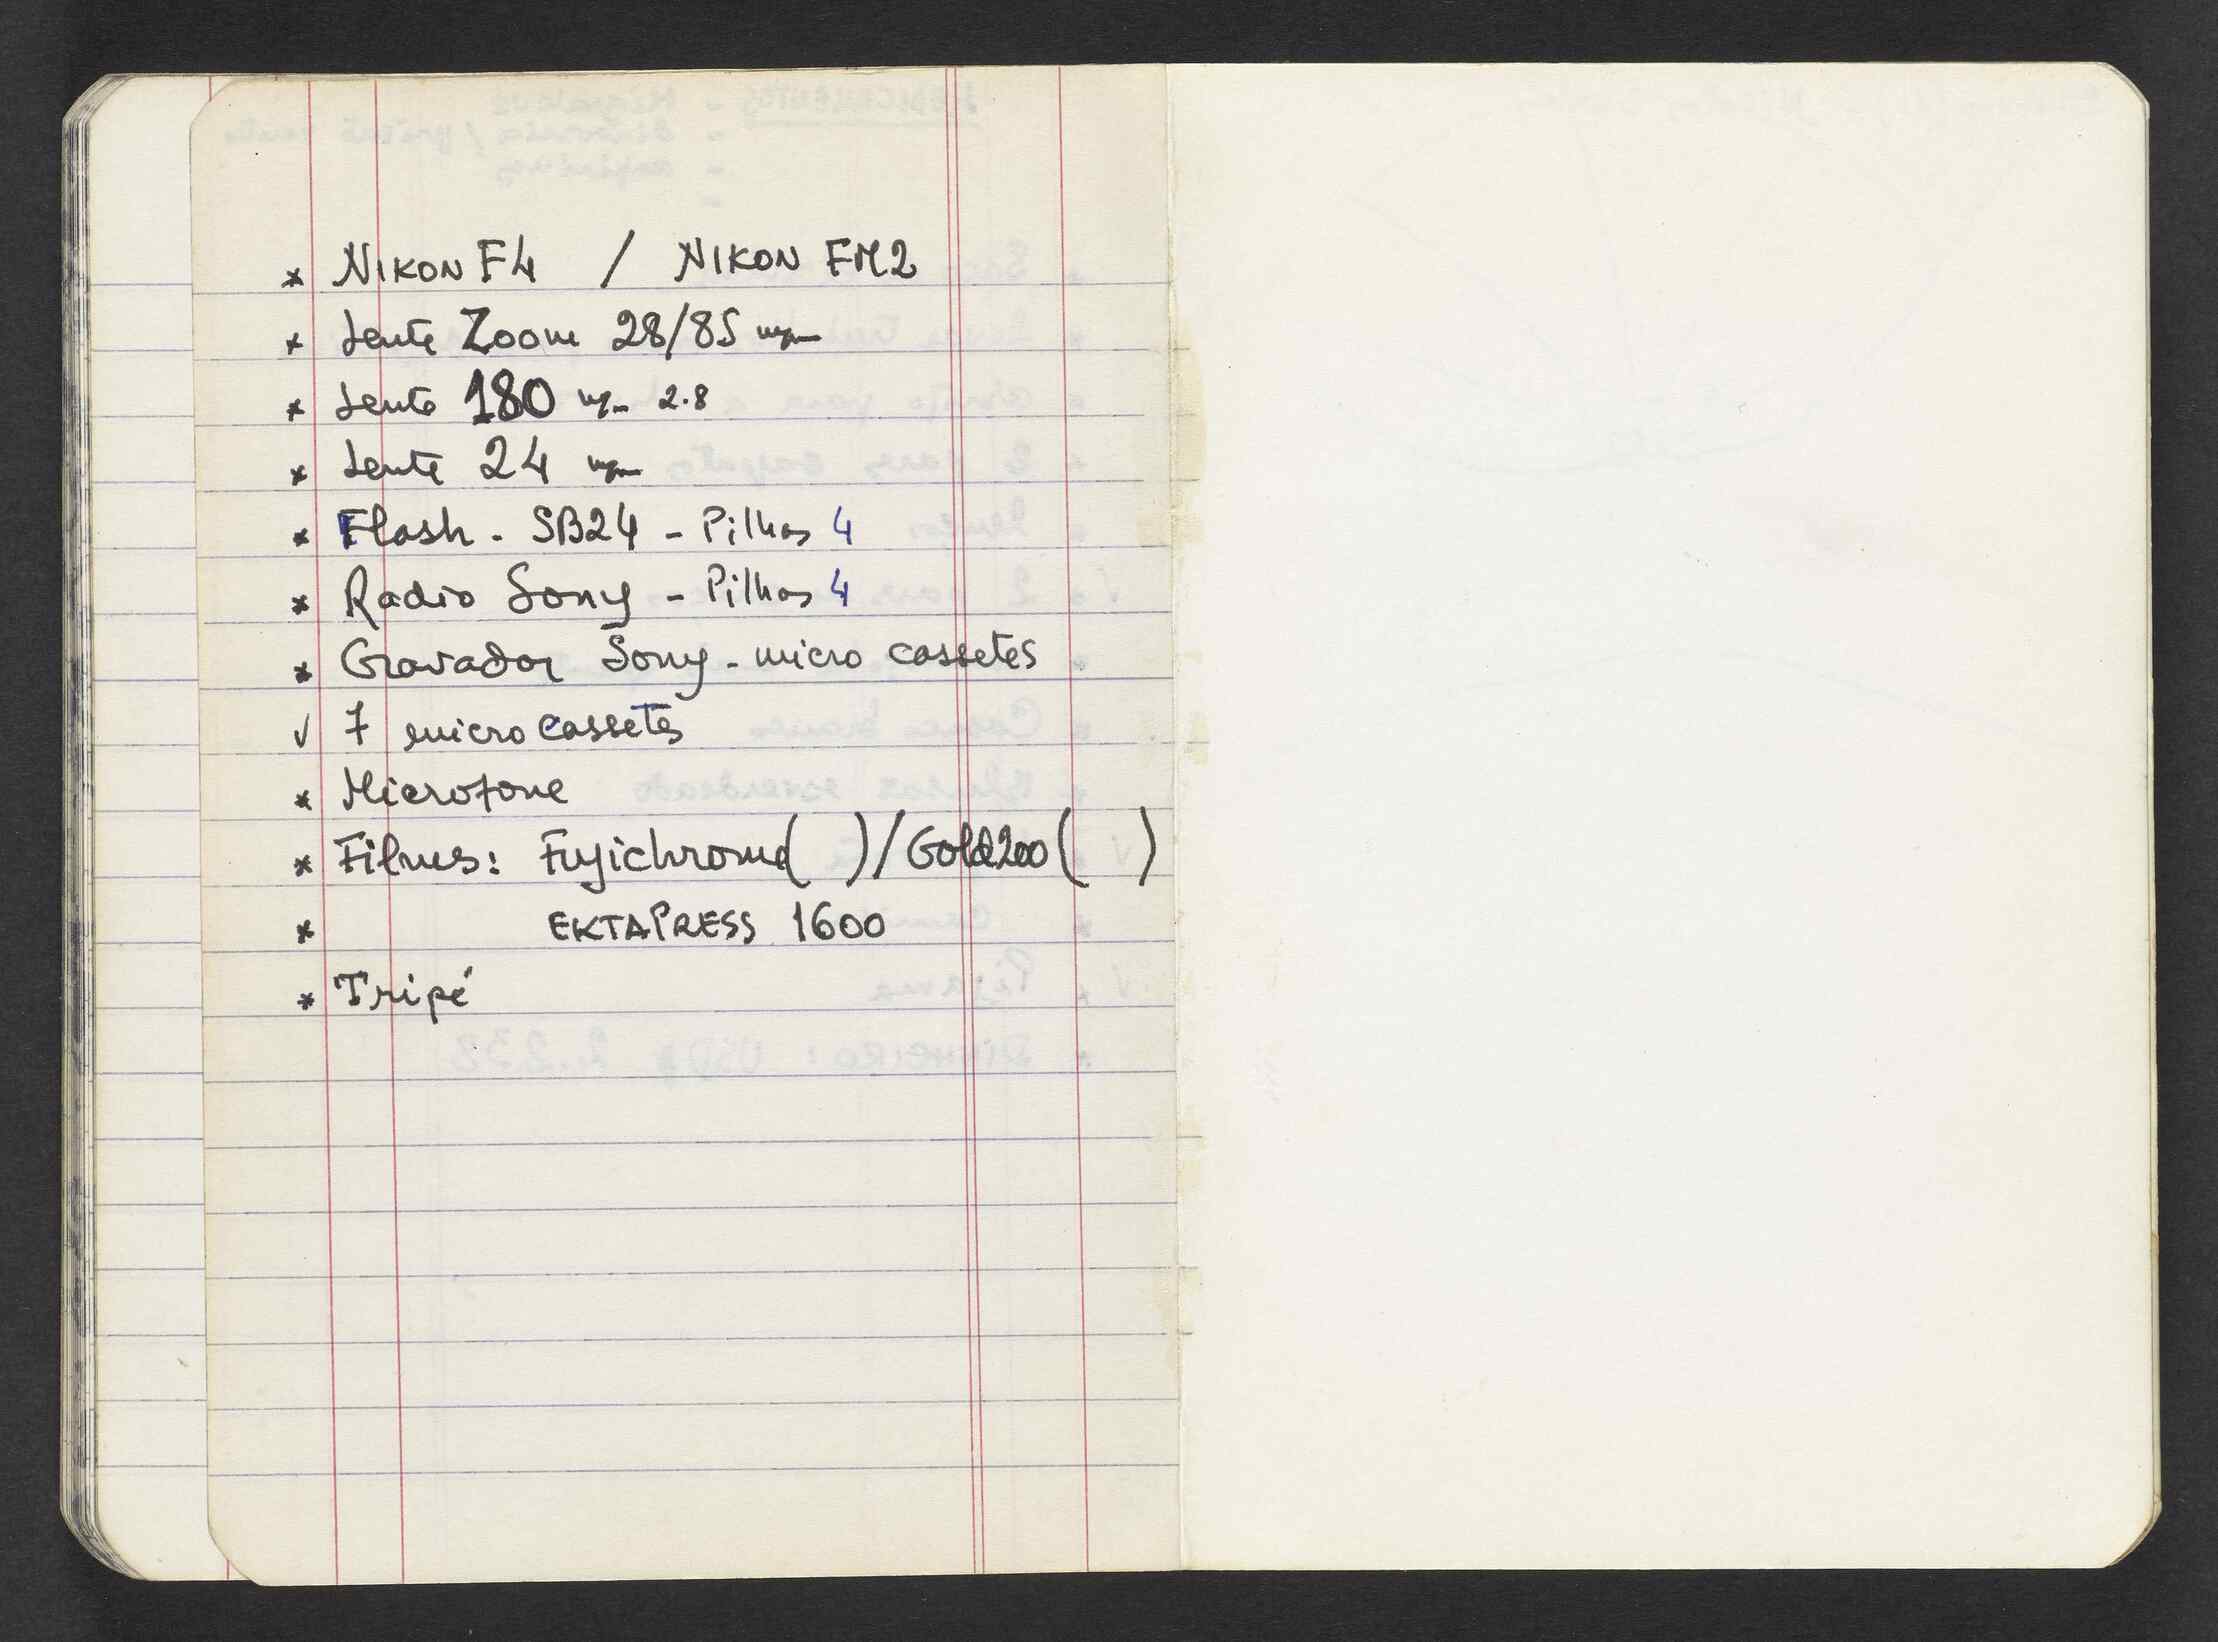 * NIKON F4 / NIKON FM2
* Lente Zoom 28/85 mm
* Lente 180 mm 2.8
* Lente 24 mm
* Flash - SB24 - Pilhas 4
* Radio Sony - Pilhas 4
* Gravador Sony - micro cassetes
✓ 7 micro cassetes
* Microfone
* Filmes: Fujichrome ( ) / Gold 200 ( )
* EKTAPRESS 1600
* Tripé